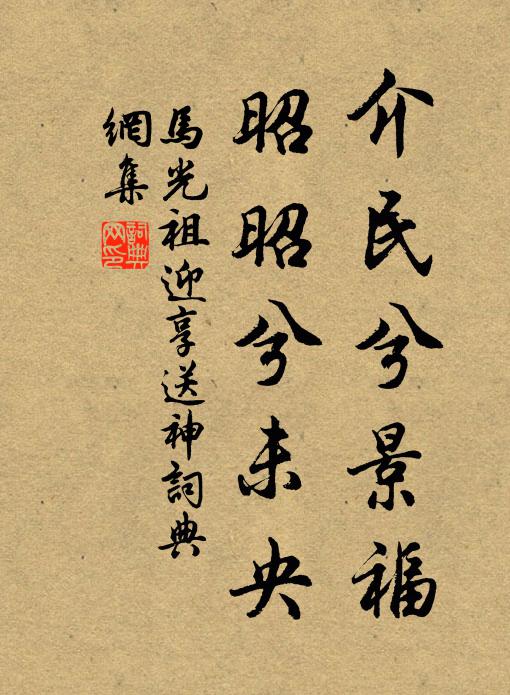 介民兮景福
昭昭兮未央
馬光祖迎享送神詞典
網集
詞典网印